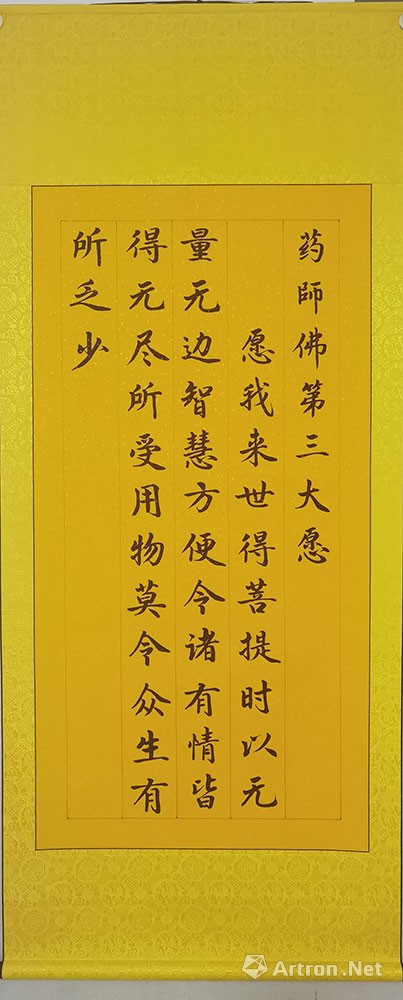 药師佛第三大愿
愿我来世得菩提时以无
量无边智慧方便令诸有情皆
得无尽所受用物莫令众生有
所乏少
Artron.Net